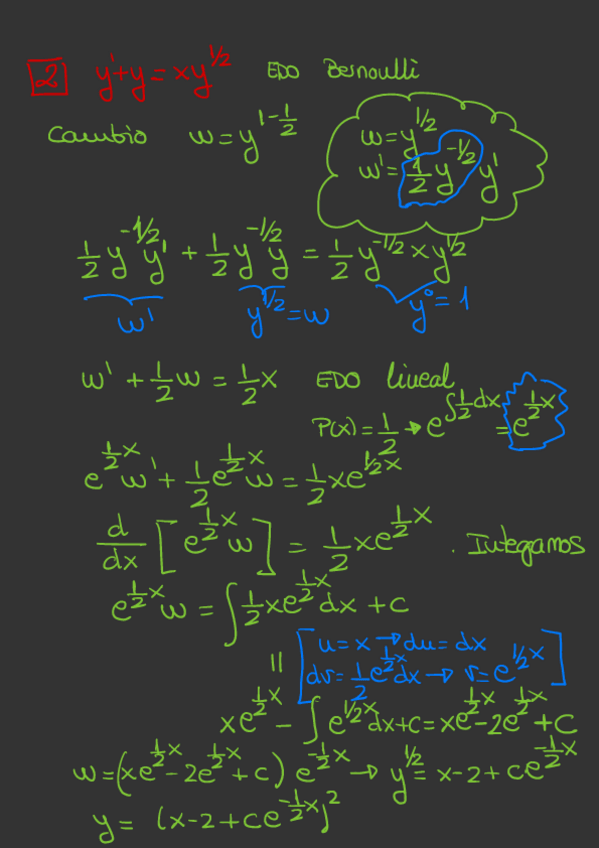 2 y'+y = xy^{1/2} EDO Bernoulli
Cambio w = y^{1-1/2}
w = y^{1/2}
w' = 1/2 y^{-1/2} y'
1/2 y^{-1/2} y' + 1/2 y^{-1/2} y = 1/2 y^{-1/2} x y^{1/2}
w' y^{1/2} = w y^0 = 1
w' + 1/2 w = 1/2 x EDO lineal
P(x) = 1/2 → e^{∫1/2 dx} = e^{1/2 x}
e^{1/2 x} w' + 1/2 e^{1/2 x} w = 1/2 x e^{1/2 x}
d/dx [e^{1/2 x} w] = 1/2 x e^{1/2 x} . Integamos
e^{1/2 x} w = ∫ 1/2 x e^{1/2 x} dx + c
=
[u = x → du = dx
dv = 1/2 e^{1/2 x} dx → v = e^{1/2 x}]
x e^{1/2 x} - ∫ e^{1/2 x} dx + c = x e^{1/2 x} - 2e^{1/2 x} + C
w = (x e^{1/2 x} - 2e^{1/2 x} + c) e^{-1/2 x} → y^{1/2} = x - 2 + c e^{-1/2 x}
y = (x - 2 + c e^{-1/2 x})^2